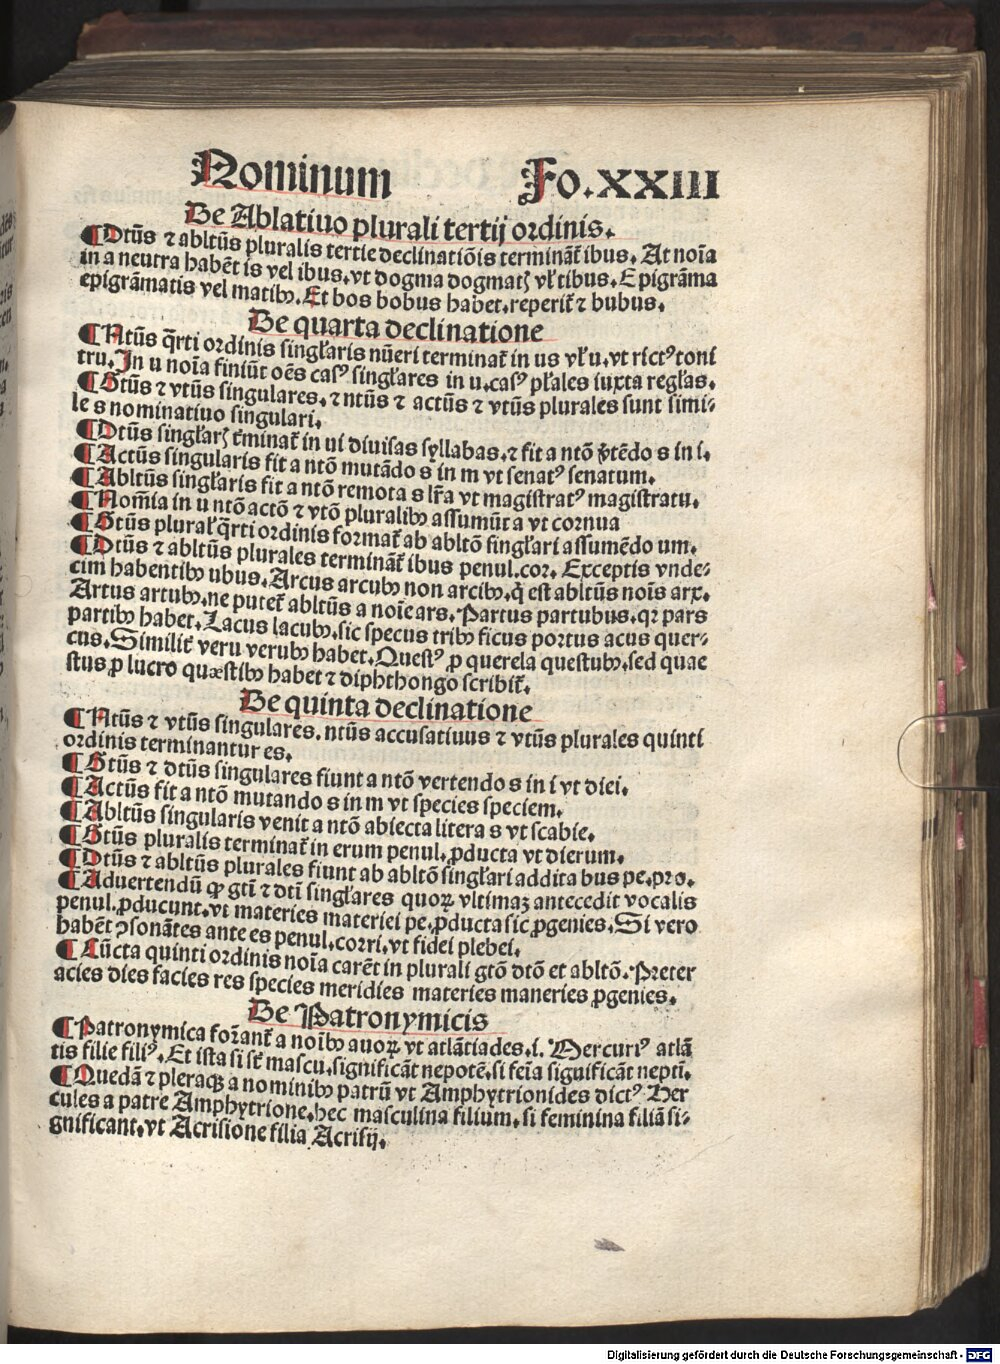 Nominum Fo.XXIII
De Ablatiuo plurali tertij ordinis.
¶ Dtūs ⁊ abltūs pluralis tertie declinatiōis termināt᷑ ibus. At noīa
in a neutra habēt is vel ibus. vt dogma dogmatꝭ vl' tibus. Epigrāma
epigrāmatis vel matibꝰ. Et bos bobus habet. reperit᷑ ⁊ bubus.
De quarta declinatione
¶ Ntūs q̄rti ordinis singl'aris nūeri terminat᷑ in us vl' u. vt rictꝰ toni
tru. In u noīa finiūt oēs casꝰ singl'ares in u. casꝰ pl'ales iuxta regl'as.
¶ Gtūs ⁊ vtūs singulares. ⁊ ntūs ⁊ actūs ⁊ vtūs plurales sunt simi⸗
le s nominatiuo singulari.
¶ Dtūs singl'arꝭ t᷑minat᷑ in ui diuisas syllabas. ⁊ fit a ntō p̄tēdo s in i.
¶ Actūs singularis fit a ntō mutādo s in m vt senatꝰ senatum.
¶ Abltūs singl'aris fit a ntō remota s lr̄a vt magistratꝰ magistratu.
¶ Nomīa in u ntō actō ⁊ vtō pluralibꝰ assumūt a vt cornua
¶ Gtūs plural' q̄rti ordinis format᷑ ab abltō singl'ari assumēdo um.
¶ Dtūs ⁊ abltūs plurales termināt᷑ ibus penul. cor. Exceptis vnde⸗
cim habentibꝰ ubus. Arcus arcubꝰ non arcibꝰ. q̇ est abltūs noīs arx.
Artus artubꝰ. ne putet᷑ abltūs a noīe ars. Partus partubus. qꝛ pars
partibꝰ habet. Lacus lacubꝰ. sic specus tribꝰ ficus portus acus quer⸗
cus. Similit᷑ veru verubꝰ habet. Questꝰ ꝓ querela questubꝰ. sed quae
stus ꝓ lucro quæstibꝰ habet ⁊ diphthongo scribit᷑.
De quinta declinatione
¶ Ntūs ⁊ vtūs singulares. ntūs accusatiuus ⁊ vtūs plurales quinti
ordinis terminantur es.
¶ Gtūs ⁊ dtūs singulares fiunt a ntō vertendo s in i vt diei.
¶ Actūs fit a ntō mutando s in m vt species speciem.
¶ Abltūs singularis venit a ntō abiecta litera s vt scabie.
¶ Gtūs pluralis terminat᷑ in erum penul. ꝓducta vt dierum.
¶ Dtūs ⁊ abltūs plurales fiunt ab abltō singl'ari addita bus pe. pro.
¶ Aduertendū ꝙ gtī ⁊ dtī singl'ares quoꝝ vltimaꝫ antecedit vocalis
penul. ꝓducunt. vt materies materiei pe. ꝓducta sic ꝓgenies. Si vero
habēt ꝯsonātes ante es penul. corri. vt fidei plebei.
¶ Cūcta quinti ordinis noīa carēt in plurali gtō dtō et abltō. Preter
acies dies facies res species meridies materies maneries ꝓgenies.
De Patronymicis
¶ Patronymica formant᷑ a noībꝰ auoꝝ vt atlātiades. i. Mercuriꝰ atlā
tis filie filiꝰ. Et ista si st᷑ mascu. significāt nepotē. si feīa siguificāt neptī.
¶ Quedā ⁊ pleraqꝫ a nominibꝰ patrū vt Amphytrionides dictꝰ Her
cules a patre Amphytrione. hec masculina filium. si feminina filiā si⸗
gnificant. vt Acrisione filia Acrisij.
Digitalisierung gefördert durch die Deutsche Forschungsgemeinschaft - DFG